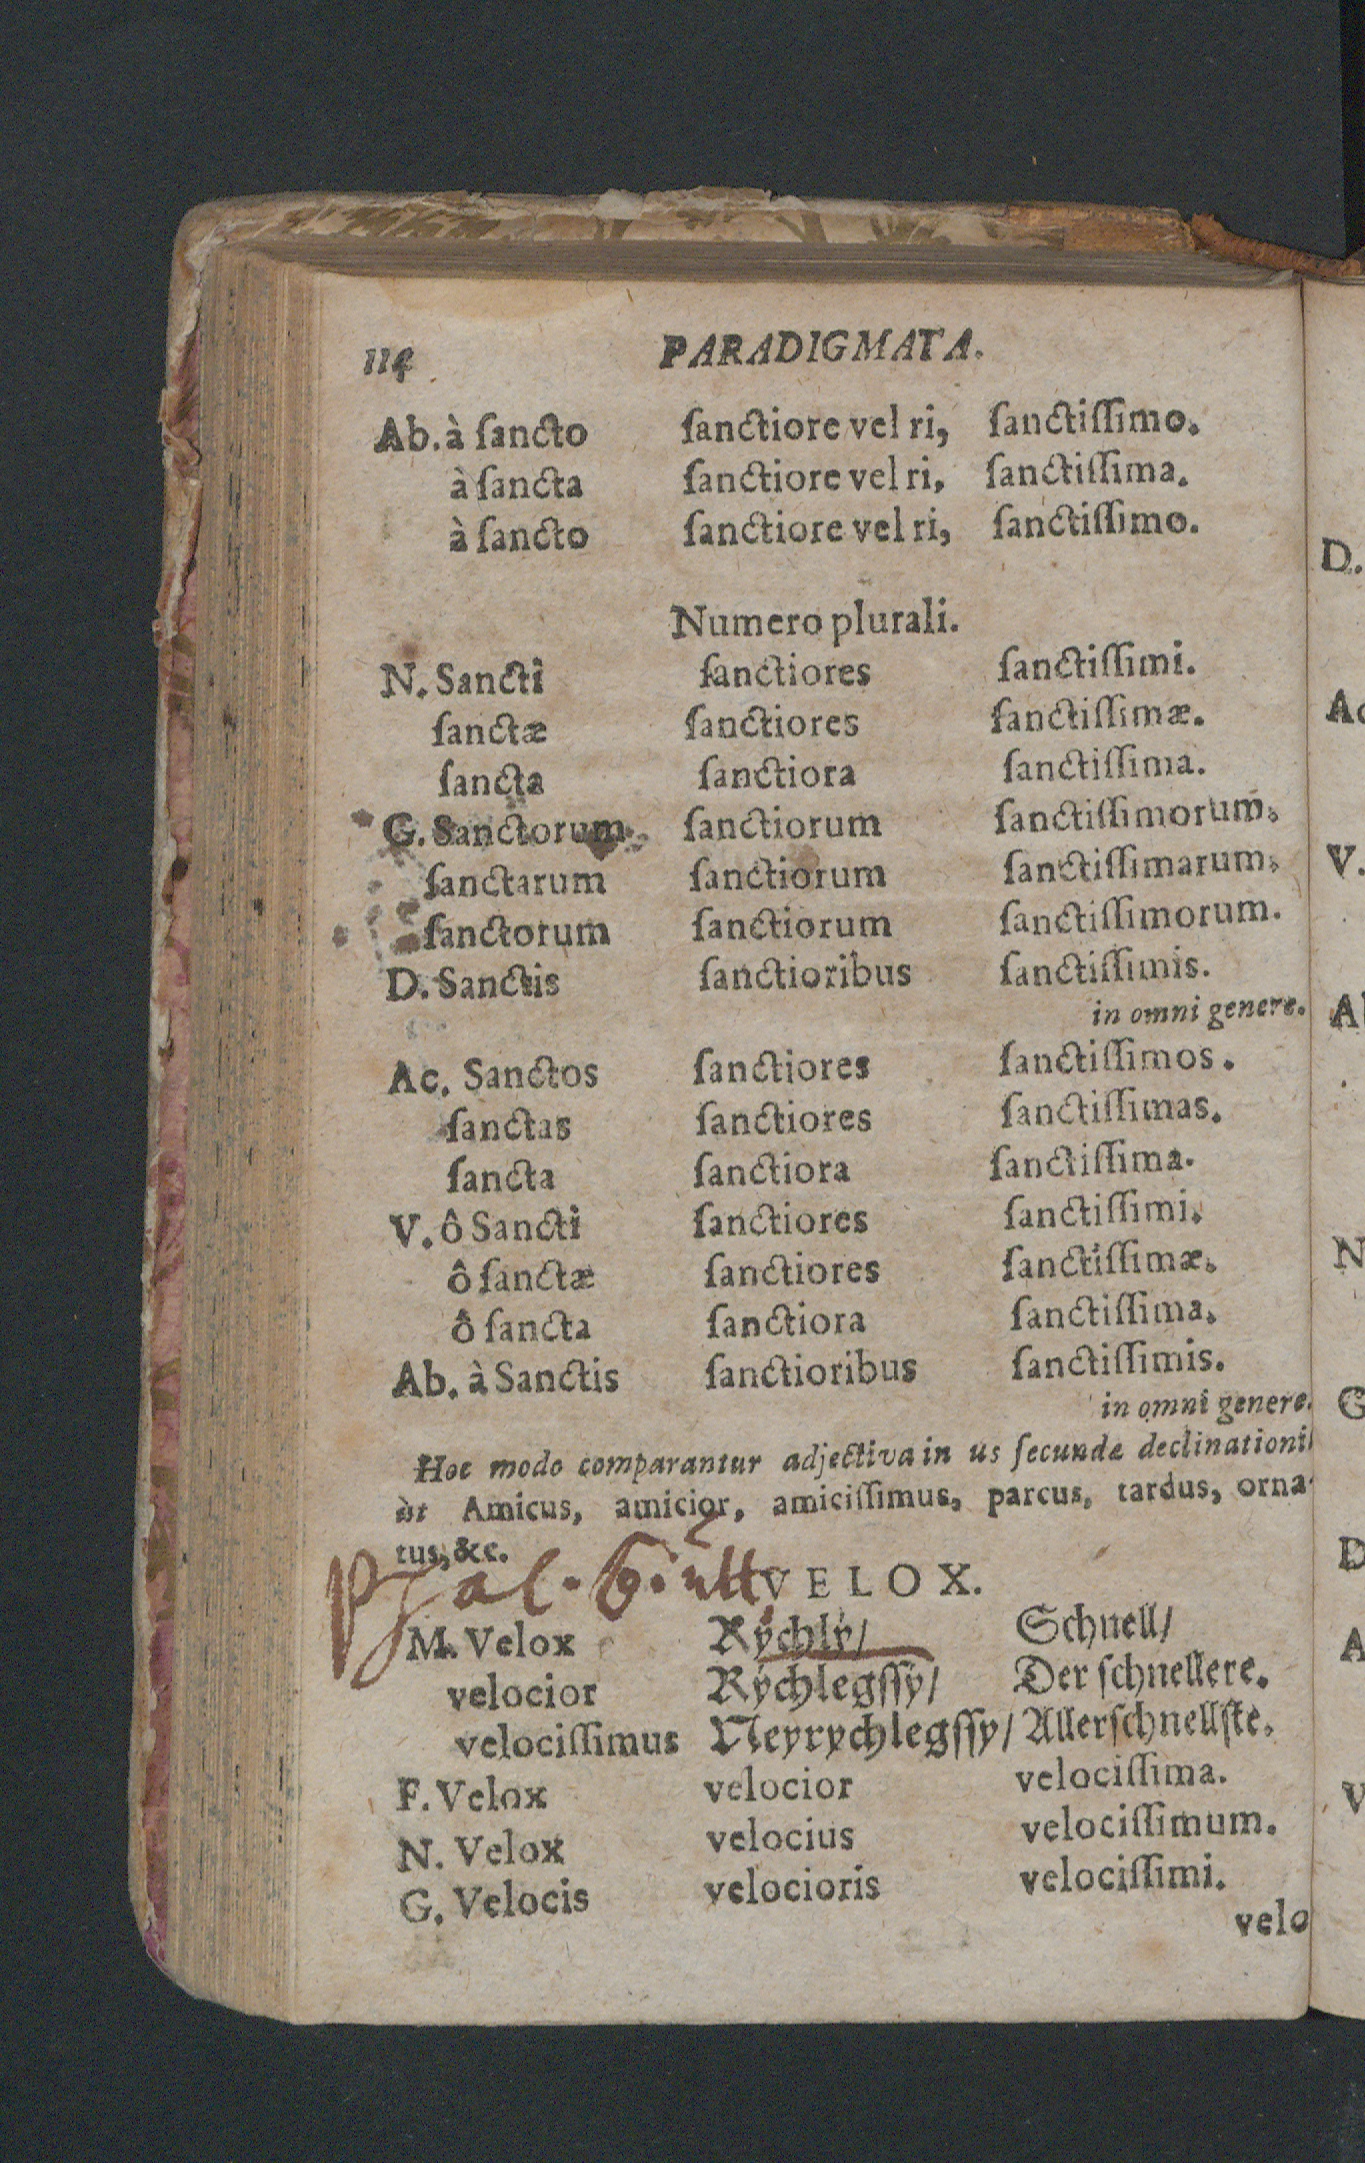 114 PARADIGMATA.
Ab. à ſancto ſanctiore vel ri, ſanctiſſimo.
à ſancta ſanctiore vel ri, ſanctiſſima.
à ſancto ſanctiore vel ri, ſanctiſſimo.
Numero plurali.
N. Sancti ſanctiores ſanctiſſimi.
ſanctæ ſanctiores ſanctiſſimæ.
ſancta ſanctiora ſanctiſſima.
G. Sanctorum ſanctiorum ſanctiſſimorum.
ſanctarum ſanctiorum ſanctiſſimarum.
ſanctorum ſanctiorum ſanctiſſimorum.
D. Sanctis ſanctioribus ſanctiſſimis.
in omni genere.
Ac. Sanctos ſanctiores ſanctiſſimos.
ſanctas ſanctiores ſanctiſſimas.
ſancta ſanctiora ſanctiſſima.
V. ô Sancti ſanctiores ſanctiſſimi.
ô ſanctæ ſanctiores ſanctiſſimæ.
ô ſancta ſanctiora ſanctiſſima.
Ab. à Sanctis ſanctioribus ſanctiſſimis.
in omni genere.
Hoc modo comparantur adjectiva in us ſecundæ declinationi
ùt Amicus, amicior, amiciſſimus, parcus, tardus, orna-
tus, &c.
VELOX.
M. Velox Rychlý/ Schnell/
velocior Rychlegſſy/ Der ſchnellere.
velociſſimus Neyrychlegſſy/ Allerſchnellſte.
F. Velox velocior velociſſima.
N. Velox velocius velociſſimum.
G. Velocis velocioris velociſſimi.
velo
D.
Ac
V.
Ab
N
G
D
A
V